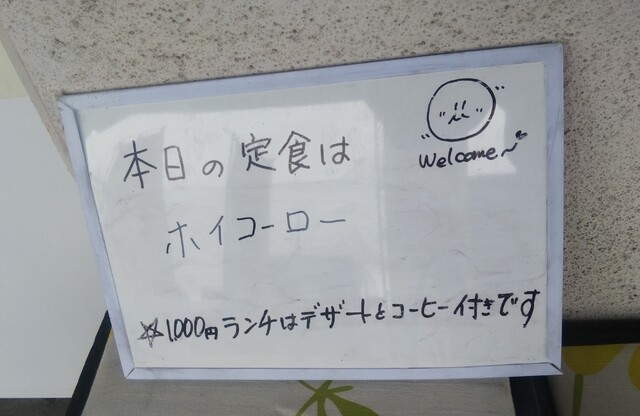 本日の定食は
welcome~
ホイコーロー
☆1,000円ランチはデザートとコーヒー付きです